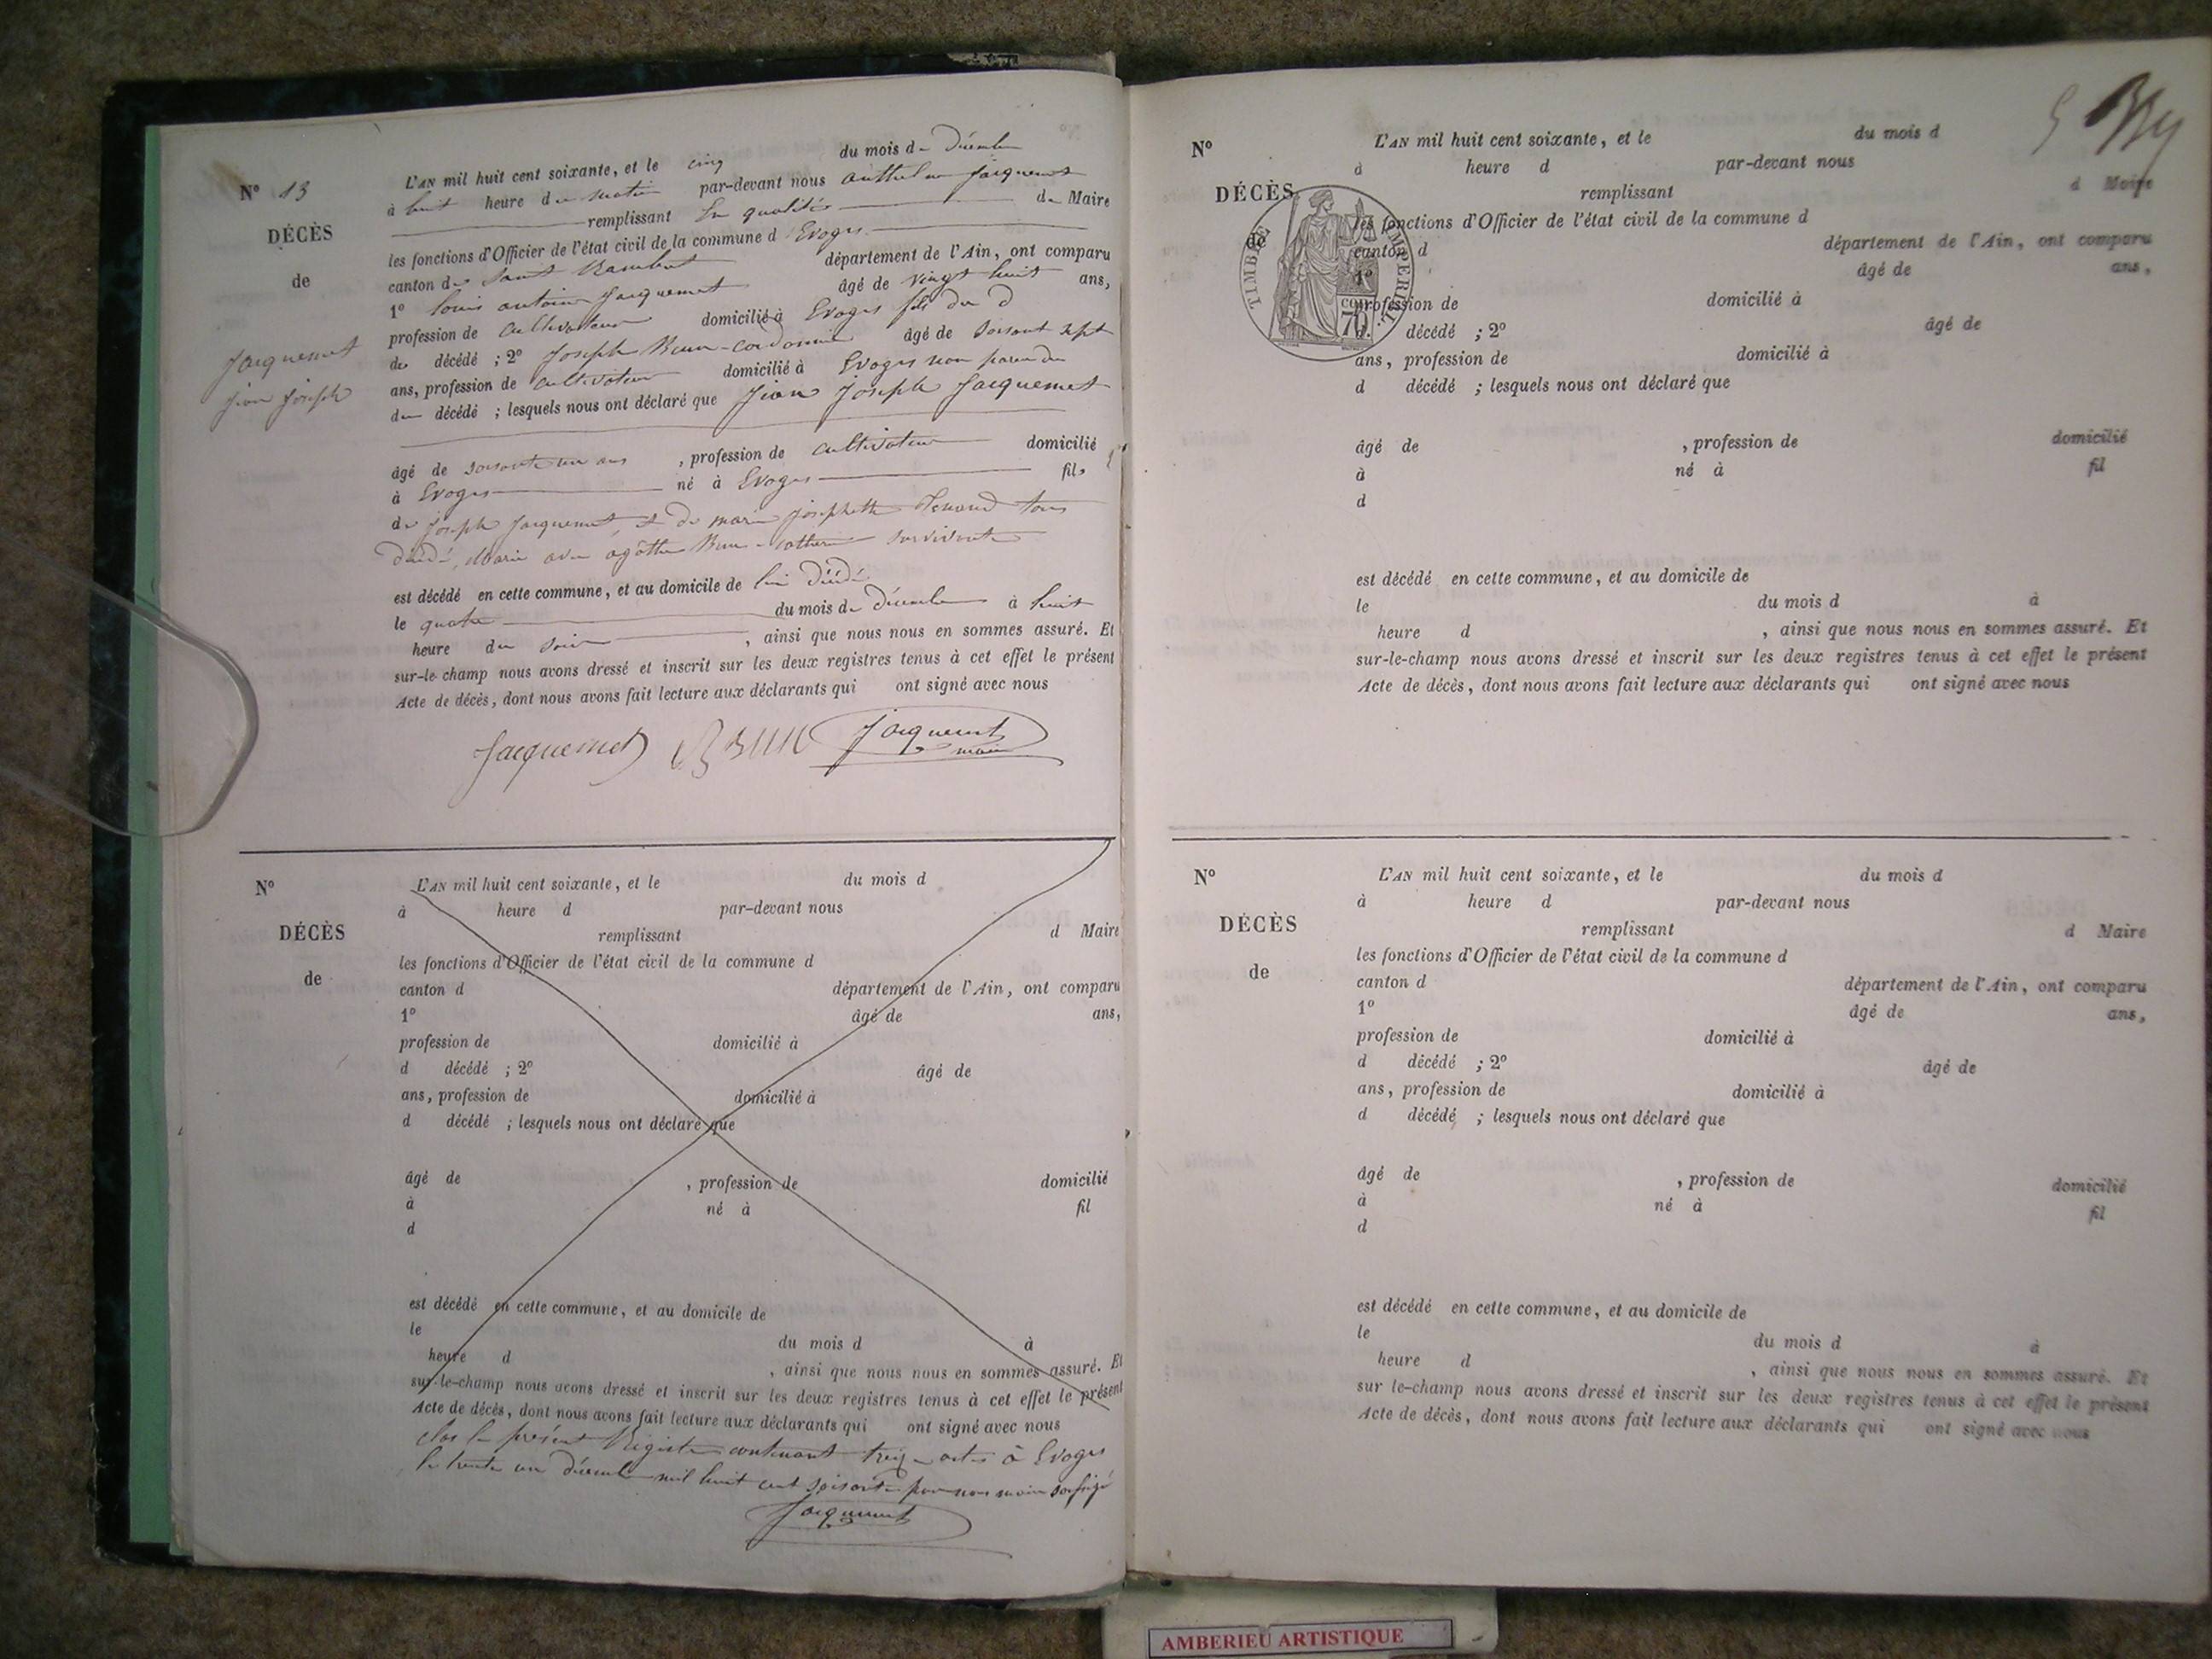 N° 13
DÉCÈS
de
Jacquemet
jean joseph
L'AN mil huit cent soixante, et le cinq du mois de Décembre
à huit heure du matin par-devant nous anthelme Jacquemet
remplissant En qualités de Maire
les fonctions d'Officier de l'état civil de la commune d Evoges
canton de Saint Rambert département de l'Ain, ont comparu
1° louis antoine Jacquemet âgé de vingt huit ans,
profession de cultivateur domicilié à Evoges fils du d
du décédé ; 2° Joseph Brun-cordonnier âgé de soisant sept
ans, profession de cultivateur domicilié à Evoges non paren du
du décédé ; lesquels nous ont déclaré que Jean joseph Jacquemet
âgé de soisante un ans , profession de cultivateur domicilié
à Evoges né à Evoges fils
de joseph Jacquemet et de marie josephette tous
décédé, Marié avec agathe Brun survivante
est décédé en cette commune, et au domicile de lui Décédé
le quatre du mois de décembre à huit
heure du soir , ainsi que nous nous en sommes assuré. Et
sur-le-champ nous avons dressé et inscrit sur les deux registres tenus à cet effet le présent
Acte de décès, dont nous avons fait lecture aux déclarants qui ont signé avec nous
Jacquemet BRUN Jacquemet
maire
N°
DÉCÈS
de
L'AN mil huit cent soixante, et le du mois d
à heure d par-devant nous
remplissant d Maire
les fonctions d'Officier de l'état civil de la commune d
canton d département de l'Ain, ont comparu
1° âgé de ans,
profession de domicilié à
d décédé ; 2° âgé de
ans, profession de domicilié à
d décédé ; lesquels nous ont déclaré que
âgé de , profession de domicilié
à né à fil
d
est décédé en cette commune, et au domicile de
le du mois d à
heure d , ainsi que nous nous en sommes assuré. Et
sur-le-champ nous avons dressé et inscrit sur les deux registres tenus à cet effet le présent
Acte de décès, dont nous avons fait lecture aux déclarants qui ont signé avec nous
clos le présent Registre contenant treize actes à Evoges
le trente un décembre mil huit cent soisante par nous maire sousigné
Jacquemet
N°
DÉCÈS
de
TIMBRE IMPERIAL
70
L'AN mil huit cent soixante, et le du mois d
à heure d par-devant nous
remplissant d Maire
les fonctions d'Officier de l'état civil de la commune d
canton d département de l'Ain, ont comparu
1° âgé de ans,
profession de domicilié à
d décédé ; 2° âgé de
ans, profession de domicilié à
d décédé ; lesquels nous ont déclaré que
âgé de , profession de domicilié
à né à fil
d
est décédé en cette commune, et au domicile de
le du mois d à
heure d , ainsi que nous nous en sommes assuré. Et
sur-le-champ nous avons dressé et inscrit sur les deux registres tenus à cet effet le présent
Acte de décès, dont nous avons fait lecture aux déclarants qui ont signé avec nous
N°
DÉCÈS
de
L'AN mil huit cent soixante, et le du mois d
à heure d par-devant nous
remplissant d Maire
les fonctions d'Officier de l'état civil de la commune d
canton d département de l'Ain, ont comparu
1° âgé de ans,
profession de domicilié à
d décédé ; 2° âgé de
ans, profession de domicilié à
d décédé ; lesquels nous ont déclaré que
âgé de , profession de domicilié
à né à fil
d
est décédé en cette commune, et au domicile de
le du mois d à
heure d , ainsi que nous nous en sommes assuré. Et
sur le-champ nous avons dressé et inscrit sur les deux registres tenus à cet effet le présent
Acte de décès, dont nous avons fait lecture aux déclarants qui ont signé avec nous
AMBERIEU ARTISTIQUE